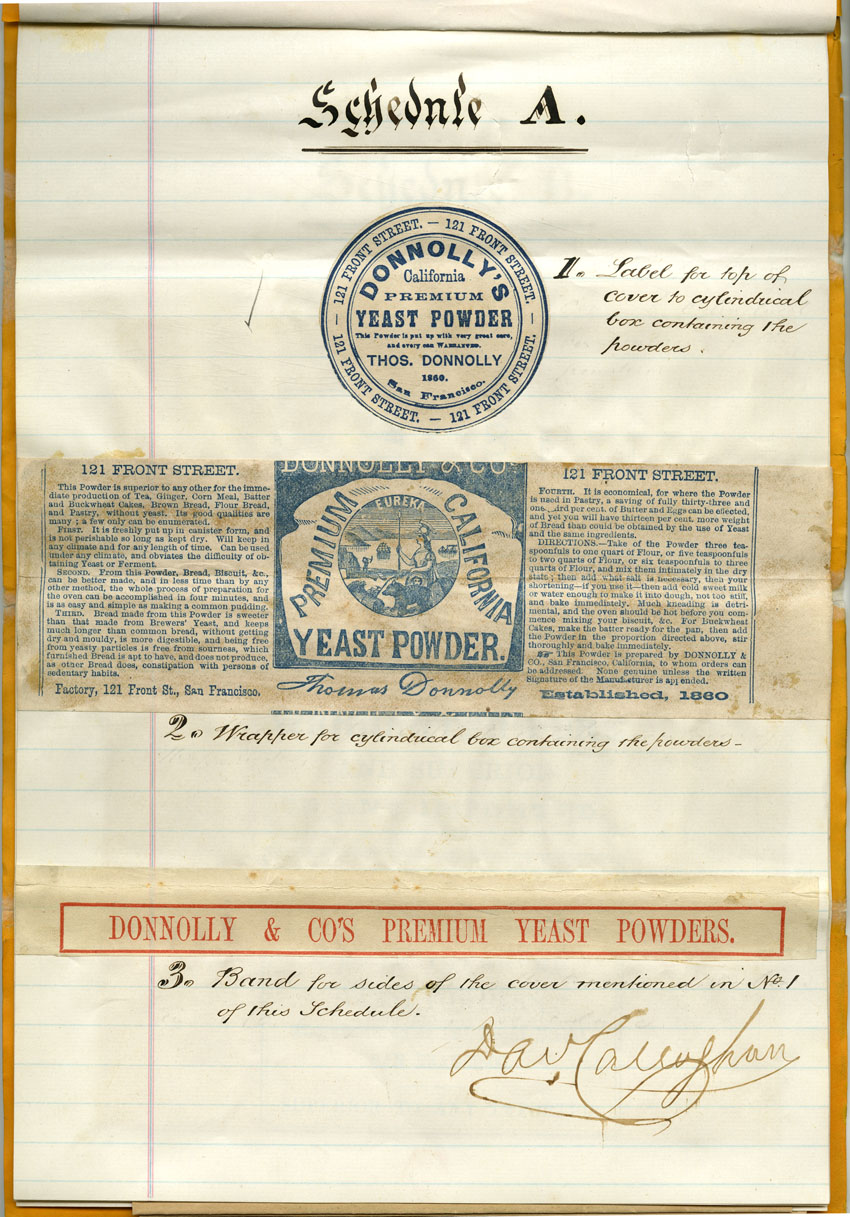 Schedule A.
121 FRONT STREET. — 121 FRONT STREET. — 121 FRONT STREET. — 121 FRONT STREET. —
DONNOLLY'S
California
PREMIUM
YEAST POWDER
This Powder is put up with very great care,
and every can WARRANTED.
THOS. DONNOLLY
1860.
San Francisco.
1. Label for top of
cover to cylindrical
box containing the
powders.
121 FRONT STREET.
This Powder is superior to any other for the imme-
diate production of Tea, Ginger, Corn Meal, Batter
and Buckwheat Cakes, Brown Bread, Flour Bread,
and Pastry, without yeast. Its good qualities are
many; a few only can be enumerated.
FIRST. It is freshly put up in canister form, and
is not perishable so long as kept dry. Will keep in
any climate and for any length of time. Can be used
under any climate, and obviates the difficulty of ob-
taining Yeast or Ferment.
SECOND. From this Powder, Bread, Biscuit, &c.,
can be better made, and in less time than by any
other method, the whole process of preparation for
the oven can be accomplished in four minutes, and
is as easy and simple as making a common pudding.
THIRD. Bread made from this Powder is sweeter
than that made from Brewers' Yeast, and keeps
much longer than common bread, without getting
dry and mouldy, is more digestible, and being free
from yeasty particles is free from sourness, which
furnished Bread is apt to have, and does not produce,
as other Bread does, constipation with persons of
sedentary habits.
Factory, 121 Front St., San Francisco.
DONNOLLY & CO'S
PREMIUM CALIFORNIA
EUREKA
YEAST POWDER.
Thomas Donnolly
121 FRONT STREET.
FOURTH. It is economical, for where the Powder
is used in Pastry, a saving of fully thirty-three and
one-third per cent. of Butter and Eggs can be effected,
and yet you will have thirteen per cent. more weight
of Bread than could be obtained by the use of Yeast
and the same ingredients.
DIRECTIONS.—Take of the Powder three tea-
spoonfuls to one quart of Flour, or five teaspoonfuls
to two quarts of Flour, or six teaspoonfuls to three
quarts of Flour, and mix them intimately in the dry
state; then add what salt is necessary, then your
shortening—if you use it—then add cold sweet milk
or water enough to make it into dough, not too stiff,
and bake immediately. Much kneading is detri-
mental, and the oven should be hot before you com-
mence mixing your biscuit, &c. For Buckwheat
Cakes, make the batter ready for the pan, then add
the Powder in the proportion directed above, stir
thoroughly and bake immediately.
☞ This Powder is prepared by DONNOLLY &
CO., San Francisco, California, to whom orders can
be addressed. None genuine unless the written
Signature of the Manufacturer is appended.
Established, 1860
2. Wrapper for cylindrical box containing the powders—
DONNOLLY & CO'S PREMIUM YEAST POWDERS.
3. Band for sides of the cover mentioned in No. 1
of this Schedule.